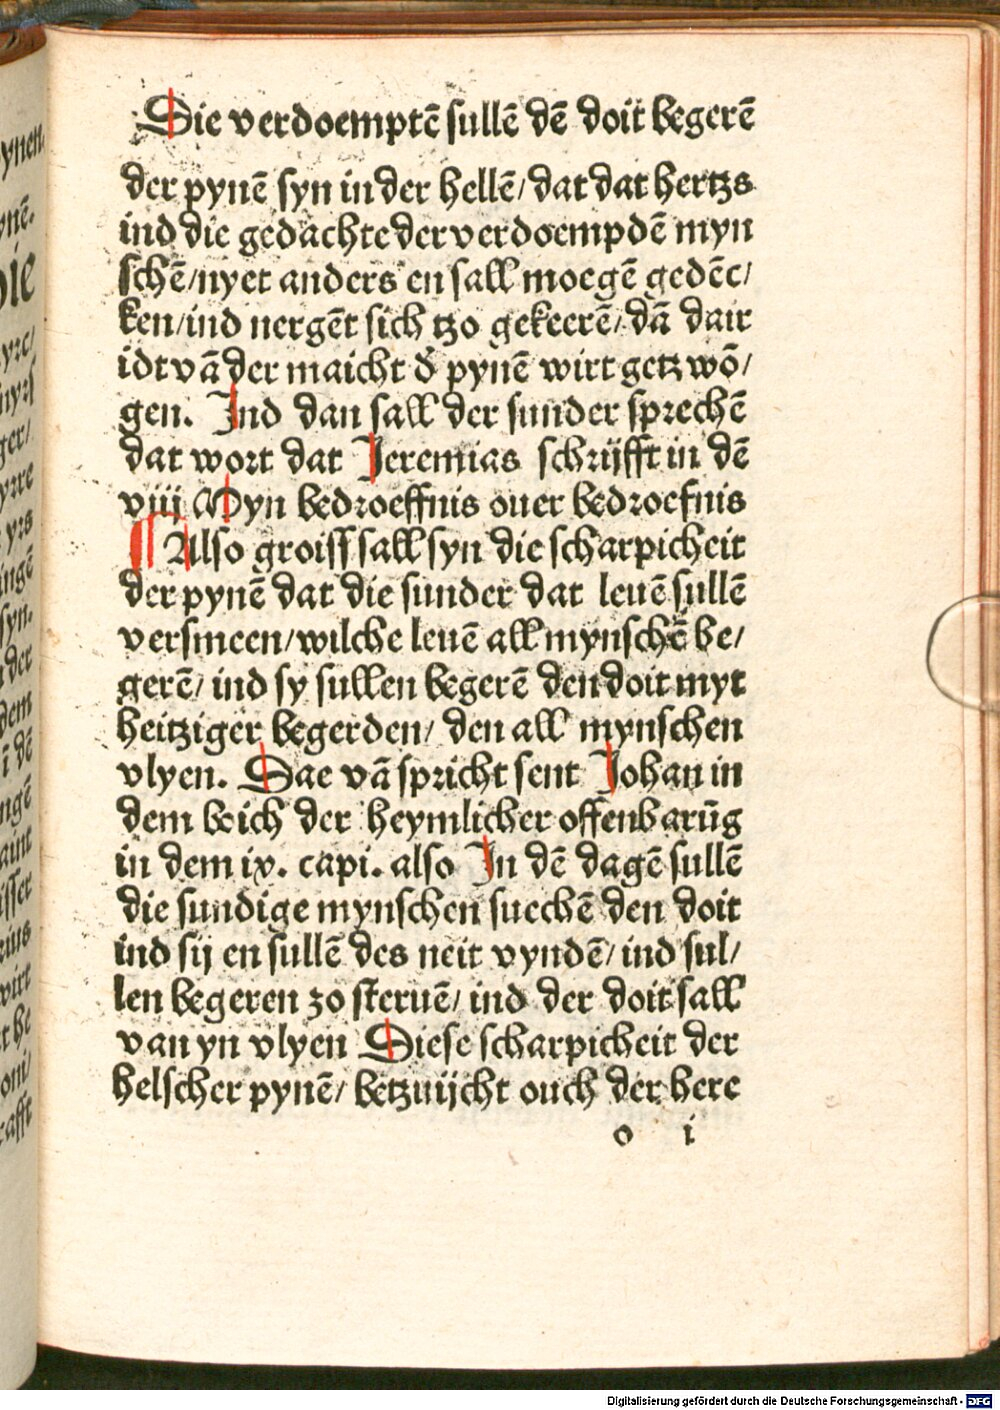 Die verdoemptē sullē dē doit begerē
der pynē syn in der hellē/ dat dat hertzs
ind die gedachte der verdoempdē myn
schē/ nyet anders en sall moegē gedēc/
ken/ ind nergēt sich tzo gekeerē/ dā dair
idt vā der maicht d̕ pynē wirt getzwō/
gen. Ind dan sall der sunder sprechē
dat wort dat Jeremias schrijfft in dē
viij Myn bedroeffnis ouer bedroefnis
¶ Also groiss sall syn die scharpicheit
der pynē dat die sunder dat leuē sullē
versmeen/ wilche leuē all mynschē be/
gerē/ ind sy sullen begerē den doit myt
heitziger begerden/ den all mynschen
vlyen. Dae vā spricht sent Johan in
dem boich der heymlicher offenbarūg
in dem ix. capi. also In dē dagē sullē
die sundige mynschen suechē den doit
ind sij en sullē des neit vyndē/ ind sul/
len begeren zo steruē/ ind der doit sall
van yn vlyen Diese scharpicheit der
helscher pynē/ betzuijcht ouch der here
o i
Digitalisierung gefördert durch die Deutsche Forschungsgemeinschaft - DFG